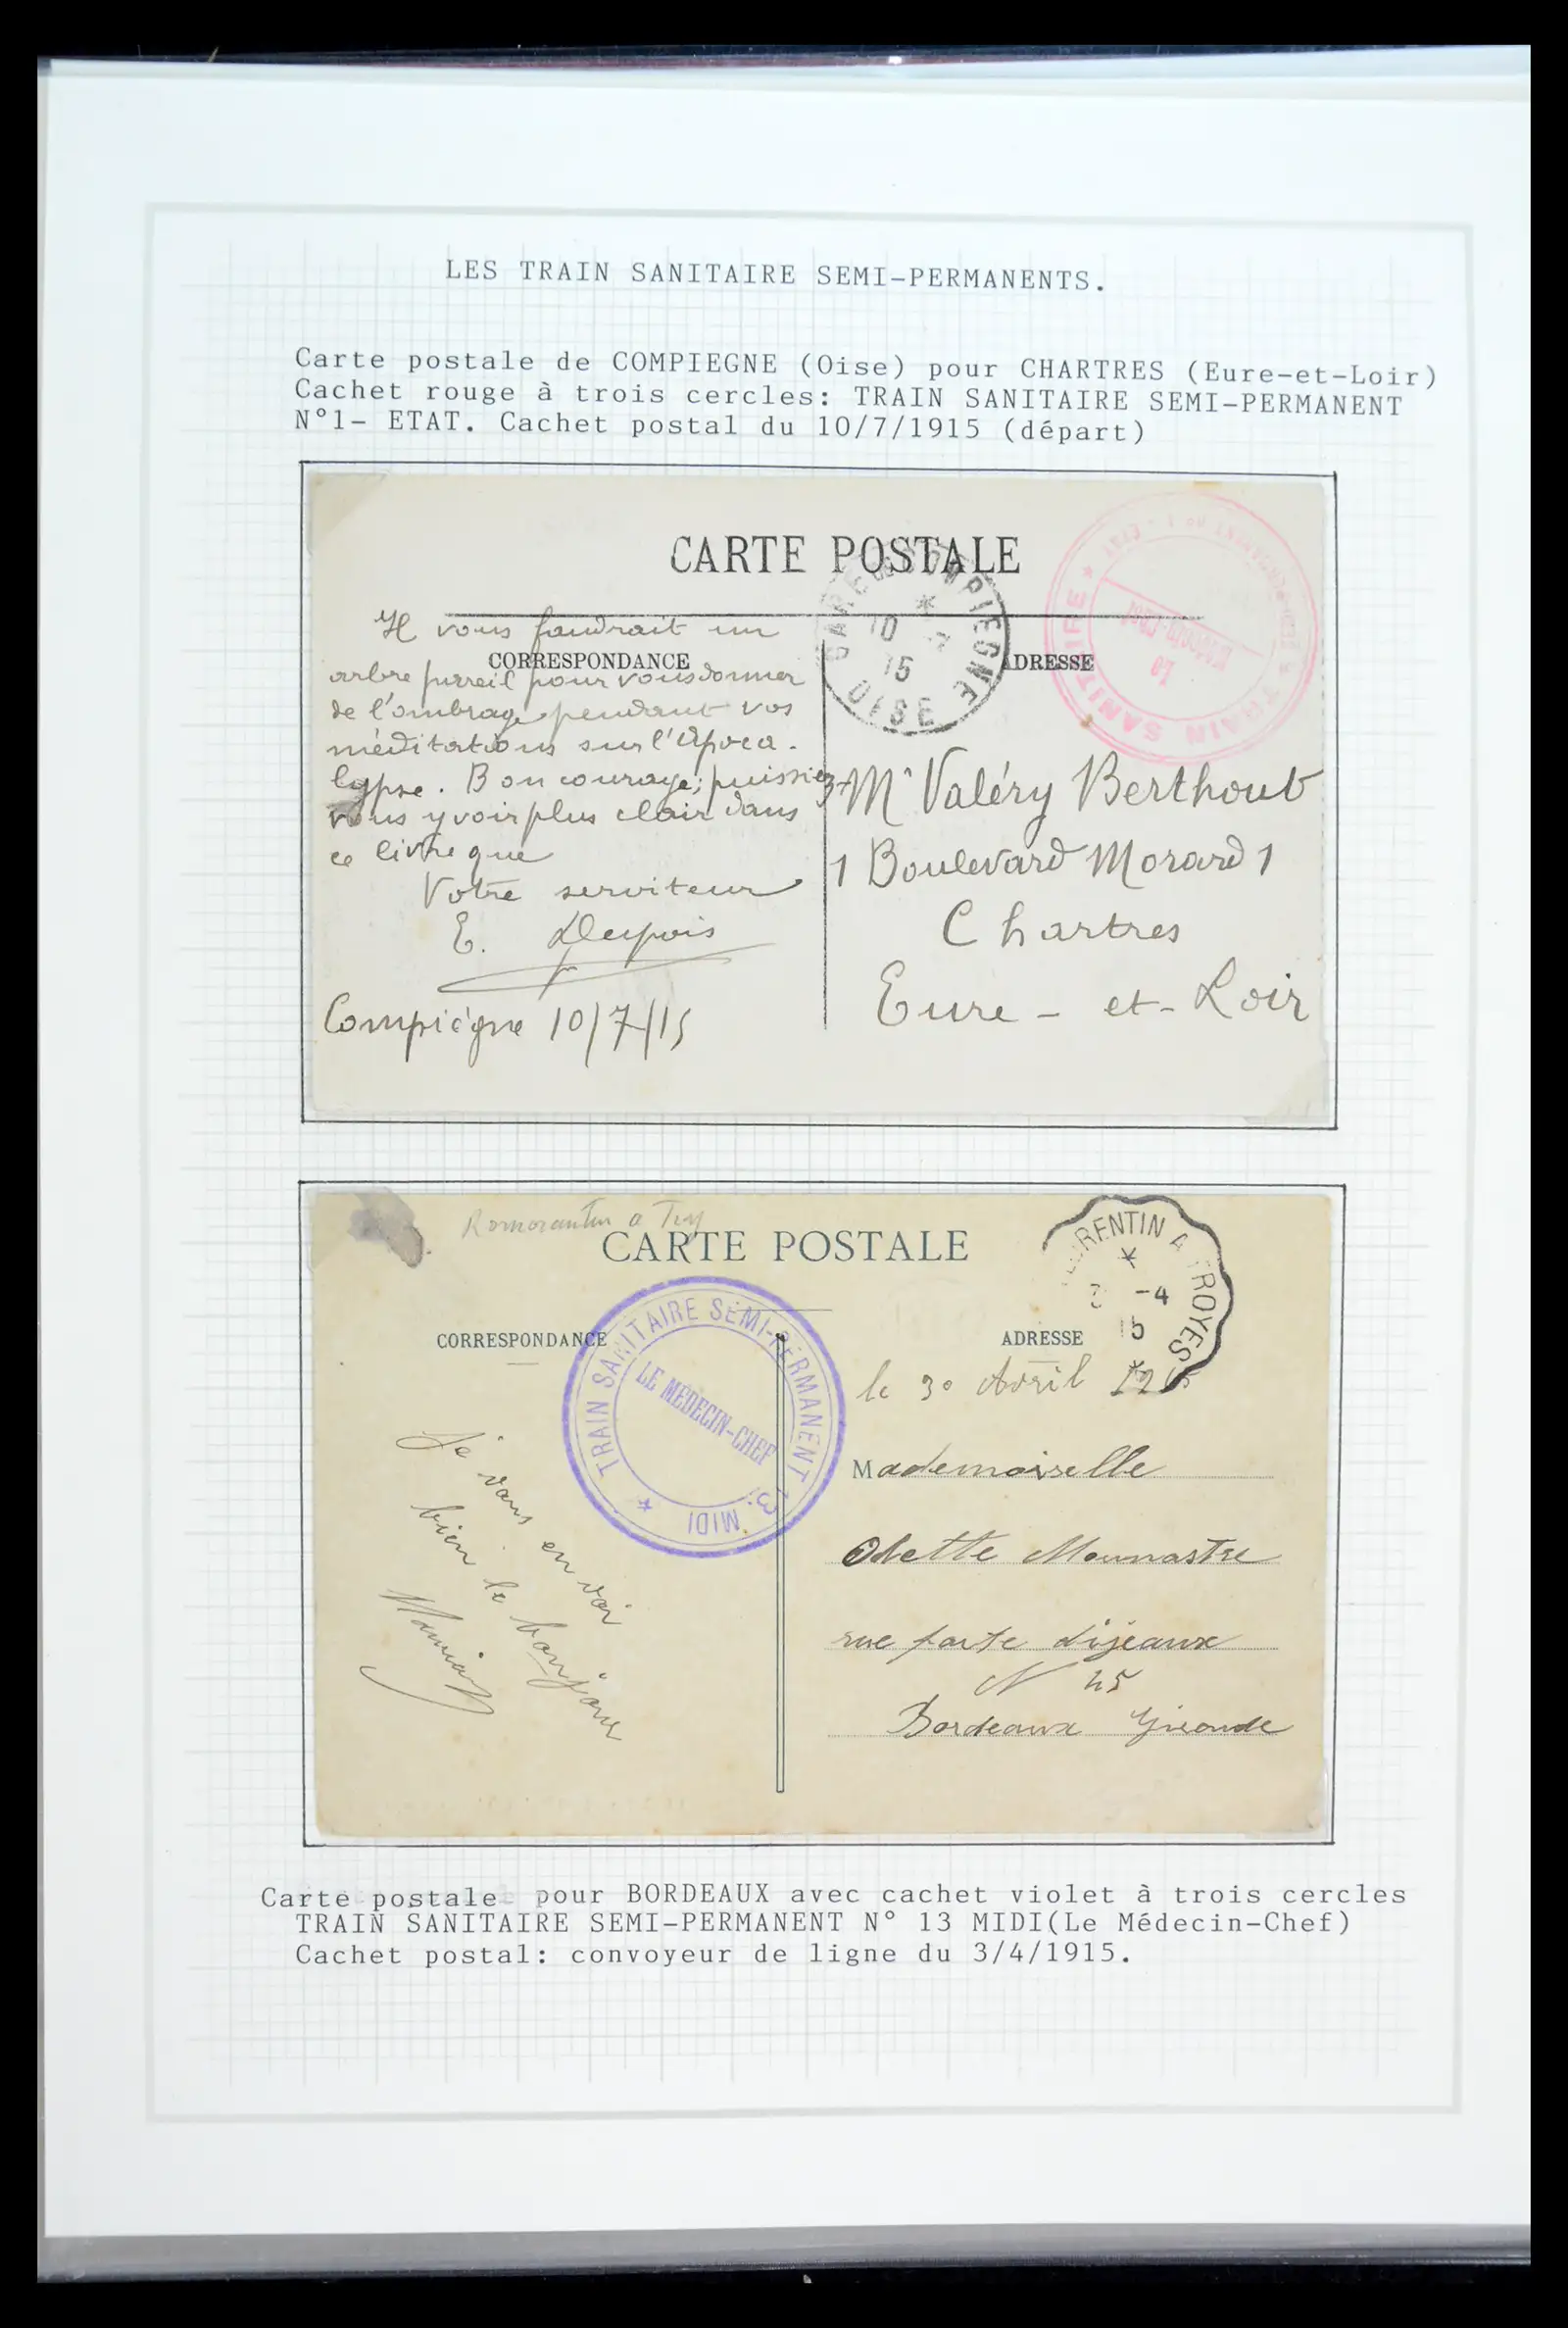 LES TRAIN SANITAIRE SEMI-PERMANENTS.
Carte postale de COMPIEGNE (Oise) pour CHARTRES (Eure-et-Loir)
Cachet rouge à trois cercles: TRAIN SANITAIRE SEMI-PERMANENT
N°1- ETAT. Cachet postal du 10/7/1915 (départ)
CARTE POSTALE
CORRESPONDANCE
ADRESSE
GARE COMPIEGNE
* 10 -7
15
OISE
* TRAIN SANITAIRE *
Il vous faudrait un
arbre pareil pour vous donner
de l'ombrage pendant vos
méditations sur l'Apoca-
lypse. Bon courage; puissiez
vous y voir plus clair dans
ce livre que
Votre serviteur
E.
Compiègne 10/7/15
Mr Valéry Berthout
1 Boulevard Morard 1
Chartres
Eure - et - Loir
Romorantin a
CARTE POSTALE
CORRESPONDANCE
ADRESSE
TRAIN SANITAIRE SEMI-PERMANENT 13. MIDI *
LE MÉDECIN-CHEF
RENTIN A TROYES
* -4
15
*
le 30 Avril
Je vous en voi
bien le bonjour
Mademoiselle
Odette
rue porte dijeaux
N 45
Bordeaux Gironde
Carte postale pour BORDEAUX avec cachet violet à trois cercles
TRAIN SANITAIRE SEMI-PERMANENT N° 13 MIDI(Le Médecin-Chef)
Cachet postal: convoyeur de ligne du 3/4/1915.